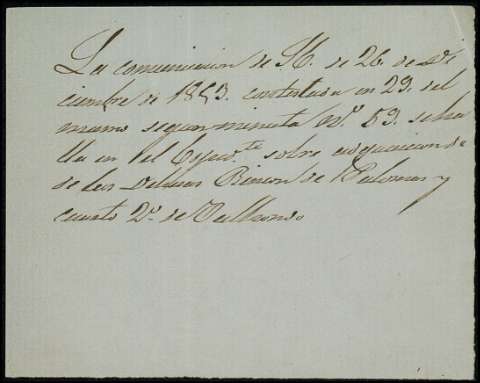 La comunicacion de St. de 26. de Di
ciembre de 1853. contestada en 29. del
mismo segun minuta nº. 53. se ha
lla en el Espedte. sobre adquisicion de
de las Dehesas Rincon de Palomas y
cuarto 2º. de Valhondo